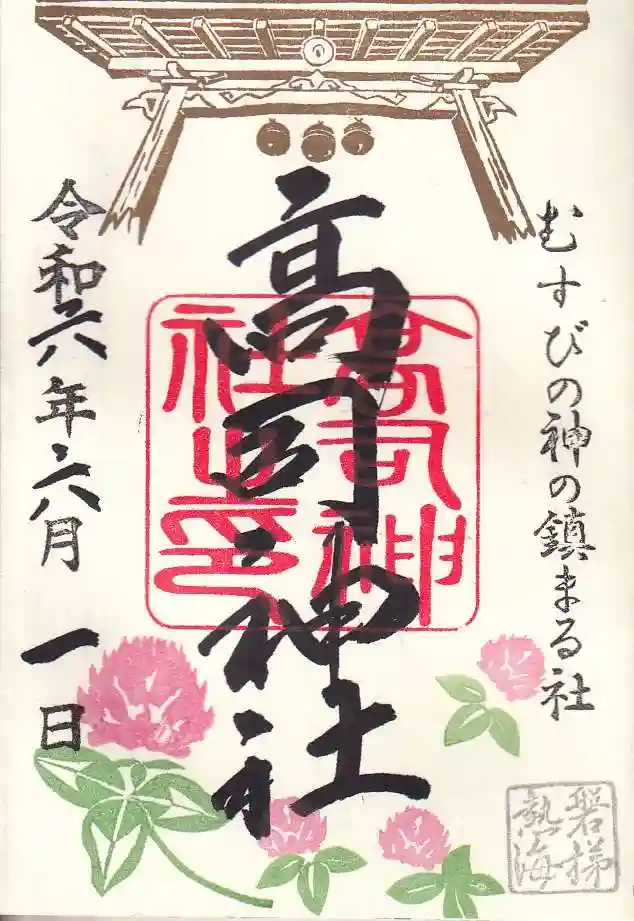 むすびの神の鎮まる社
高司神社
高司神
社之印
令和六年六月一日
磐梯
熱海